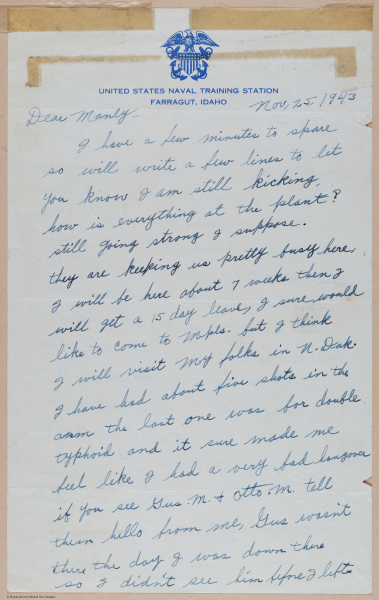 UNITED STATES NAVAL TRAINING STATION
FARRAGUT, IDAHO
Nov. 25 1943
Dear Manly-
I have a few minutes to spare
so will write a few lines to let
you know I am still kicking,
how is everything at the plant?
still going strong I suppose.
they are keeking us pretty busy here,
I will be here about 7 weeks then I
will get a 15 day leave, I sure would
like to come to Mpls. but I think
I will visit my folks in N. Dak.
I have had about five shots in the
arm the last one was for double
typhoid and it sure made me
feel like I had a very bad hangover
if you see Gus. M. + Otto. M. tell
them hello from me, Gus wasn't
there the day I was down there
so I didn't see him before I left.